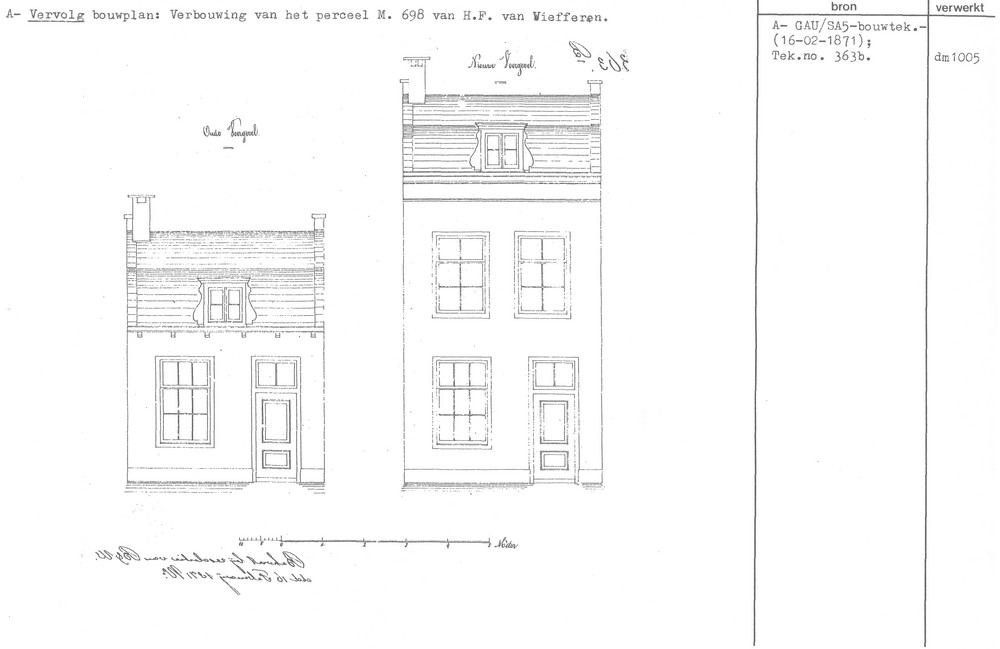 A- Vervolg bouwplan: Verbouwing van het perceel M. 698 van H.F. van Wiefferen.
bron
verwerkt
A- GAU/SA5-bouwtek.-
(16-02-1871);
Tek.no. 363b.
dm1005
Nieuwe Voorgevel.
Oude Voorgevel.
10 0 1 2 3 4 5 Meter
Behoort bij resolutie van B&W.
dd. 16 Februarij 1871